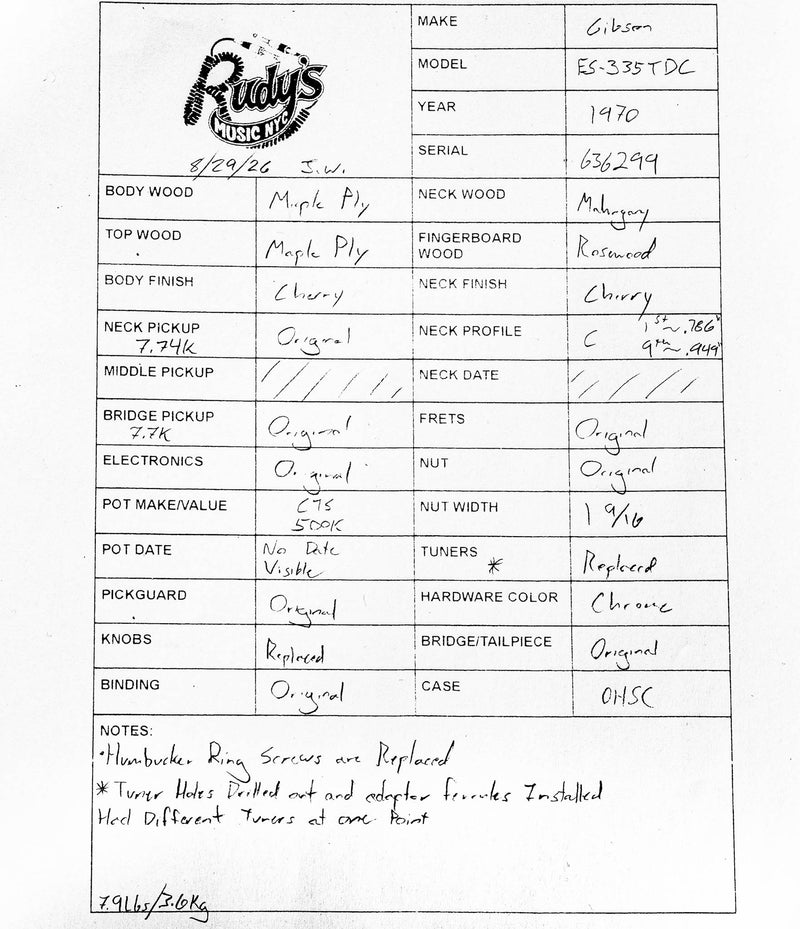 Rudy's
MUSIC NYC
8/29/26 J.W.
MAKE Gibson
MODEL ES-335TDC
YEAR 1970
SERIAL 636299
BODY WOOD Maple Ply NECK WOOD Mahogany
TOP WOOD Maple Ply FINGERBOARD WOOD Rosewood
BODY FINISH Cherry NECK FINISH Cherry
NECK PICKUP 7.74K Original NECK PROFILE C 1st ~ .786" 9th ~ .949"
MIDDLE PICKUP ///// NECK DATE ////
BRIDGE PICKUP 7.7K Original FRETS Original
ELECTRONICS Original NUT Original
POT MAKE/VALUE CTS 500K NUT WIDTH 1 9/16
POT DATE No Date Visible TUNERS * Replaced
PICKGUARD Original HARDWARE COLOR Chrome
KNOBS Replaced BRIDGE/TAILPIECE Original
BINDING Original CASE OHSC
NOTES:
•Humbucker Ring Screws are Replaced
*Tuner Holes Drilled out and adapter ferrules Installed
Had Different Tuners at one Point
7.9Lbs/3.6Kg